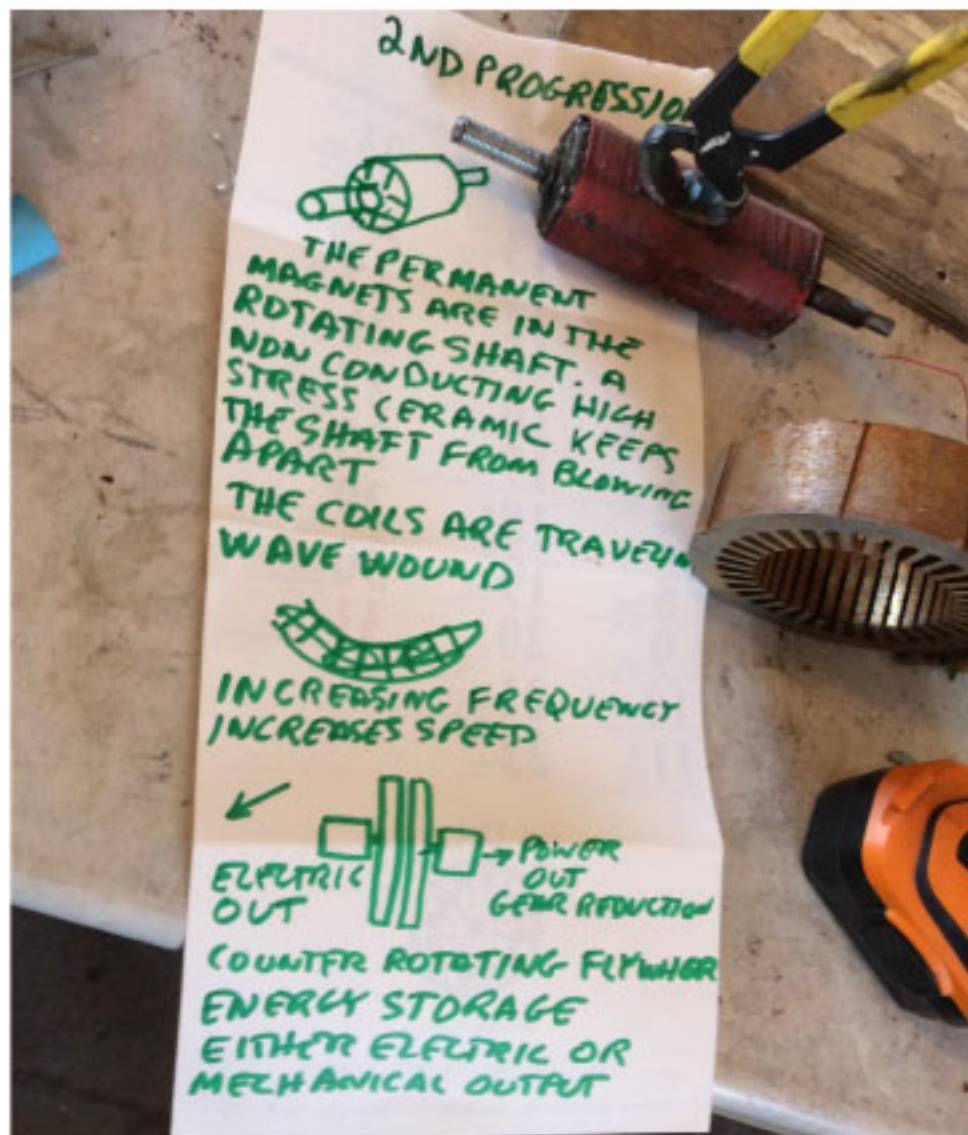 2ND PROGRESSIO
THE PERMANENT
MAGNETS ARE IN THE
ROTATING SHAFT. A
NON CONDUCTING HIGH
STRESS CERAMIC KEEPS
THE SHAFT FROM BLOWING
APART
THE COILS ARE TRAVELIN
WAVE WOUND
INCREASING FREQUENCY
INCREASES SPEED
ELECTRIC
OUT
→ POWER
OUT
GEAR REDUCTION
COUNTER ROTATING FLYWHEE
ENERGY STORAGE
EITHER ELECTRIC OR
MECHANICAL OUTPUT